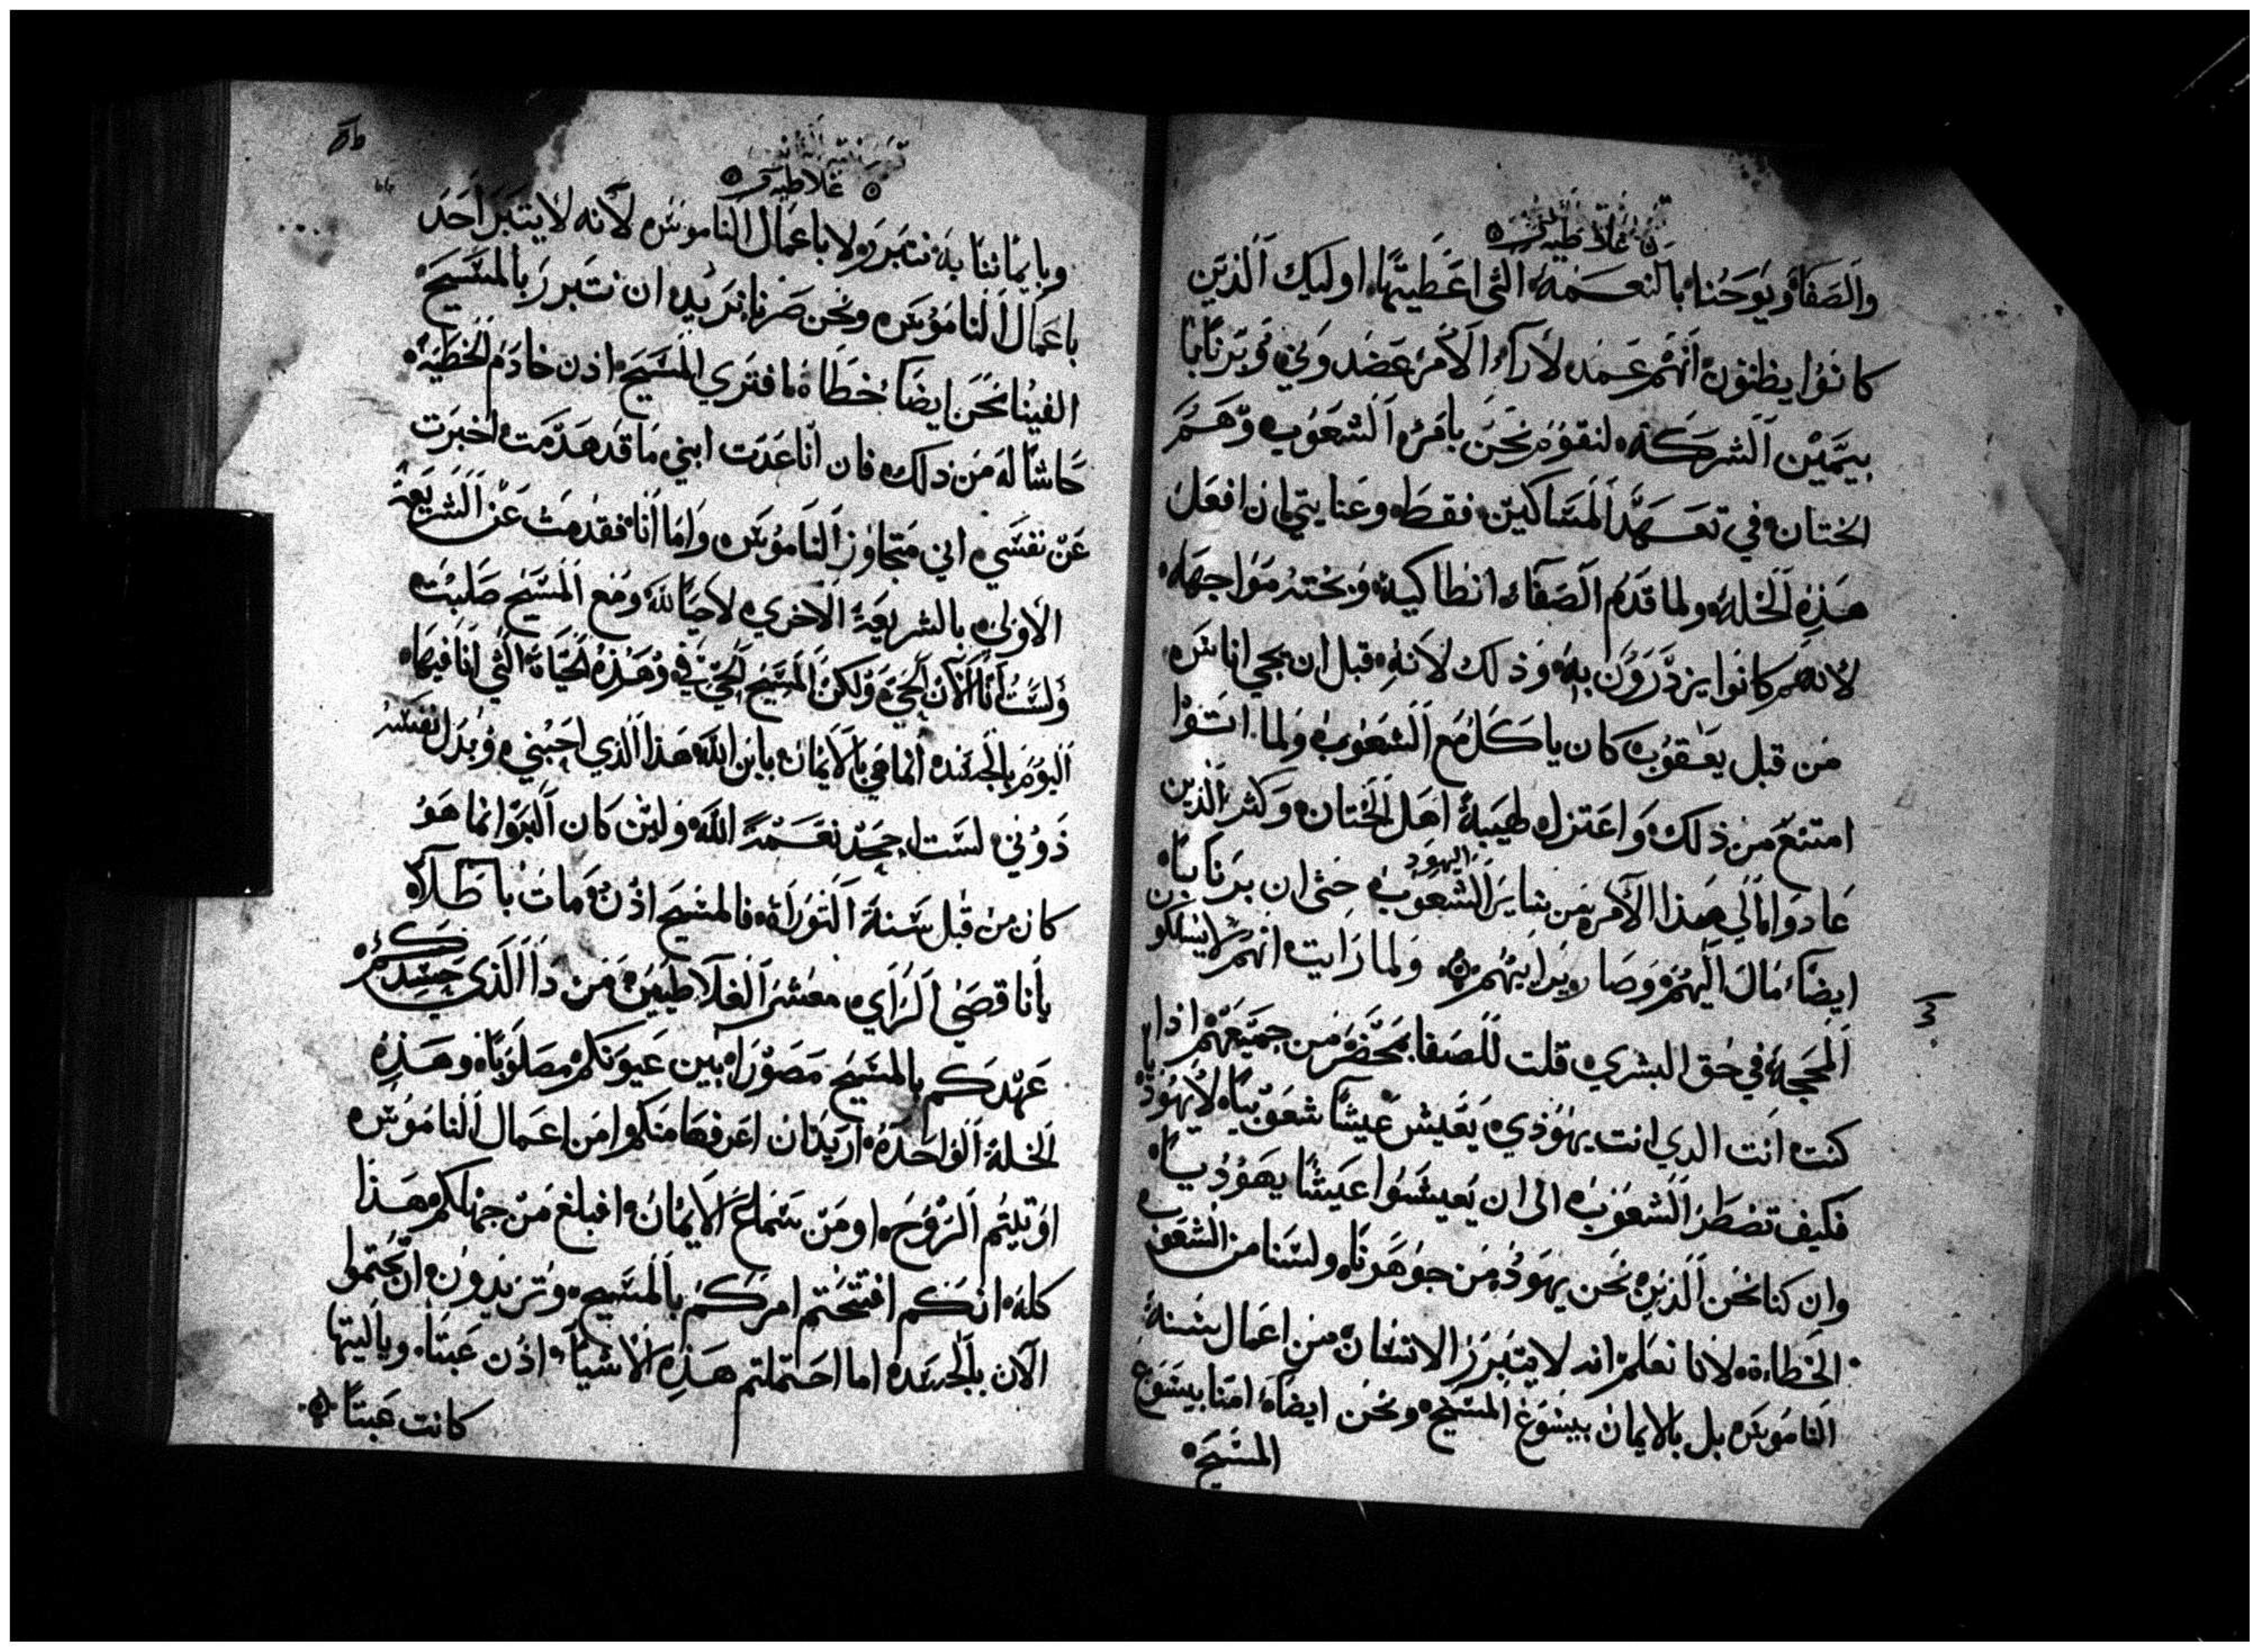 غلاطيه
والصفا ويوحنا بالنعمه التى اعطيتها اوليك الذين
كانوا يظنون انهم عمد لاراء الامر عضدوني وبرنابا
بيمين الشركة لنقوم نحن بامر الشعوب وهم
الختان في تعهد المساكين فقط وعنايتي ان افعل
هذه الخله ولما قدم الصفا انطاكية وبختة مواجهه
لانهم كانوا يزدرون به وذلك لانه قبل ان يجي اناس
من قبل يعقوب كان ياكل مع الشعوب ولما اتوا
امتنع من ذلك واعتزل هيبة اهل الختان وكثر الذين
عادوا الي هذا الامر من ساير الشعوب اليهود حتى ان برنابا
ايضا مال اليهم وصار يرايهم ولما رايت انهم لا يسلكون
المحجة في حق البشري قلت للصفا بمحضر من جميعهم اذا
كنت انت الدي انت يهوذي يعيش عيشا شعوبيا لا يهوديا
فكيف تضطر الشعوب الى ان يعيشوا عيشا يهوديا
وان كنا نحن الذين نحن يهود من جوهرنا ولسنا من الشعوب
الخطاءة لانا نعلم انه لا يتبرر الانسان من اعمال سنة
الناموس بل بالايمان بيسوع المسيح ونحن ايضا امنا بيسوع
المسيح
غلاطيه
وبايماننا به نتبرر لا باعمال الناموس لانه لا يتبرر احد
باعمال الناموس ونحن صرنا نريد ان نتبرر بالمسيح
الفينا نحن ايضا خطاة افتري المسيح اذن خادم الخطية
حاشا له من دلك فان انا عدت ابني ما قد هدمت اخبرت
عن نفسي اني متجاوز الناموس واما انا فقد مت عن الشريعة
الاولي بالشريعة الاخري لاحيا لله ومع المسيح صلبت
ولست انا الان الحي ولكن المسيح الحي في وهذه الحياة التي انا فيها
اليوم بالجسد انما هي بالايمان بابن الله هذا الذي احبني وبدل نفسه
دوني لست اجحد نعمة الله ولين كان البر انما هو
كان من قبل سنة التوراة فالمسيح اذن مات باطلا
يا ناقصي الراي معشر الغلاطيين من دا الذي حسدكم
عهدكم بالمسيح مصورا بين عيونكم مصلوبا وهذه
الخلة الواحدة اريد ان اعرفها منكم امن اعمال الناموس
اوتيتم الروح او من سماع الايمان افبلغ من جهلكم هذا
كله انكم افتتحتم امركم بالمسيح وتريدون ان تختموا
الان بالجسد اما احتملتم هذه الاشيا اذن عبثا وياليتها
كانت عبثا